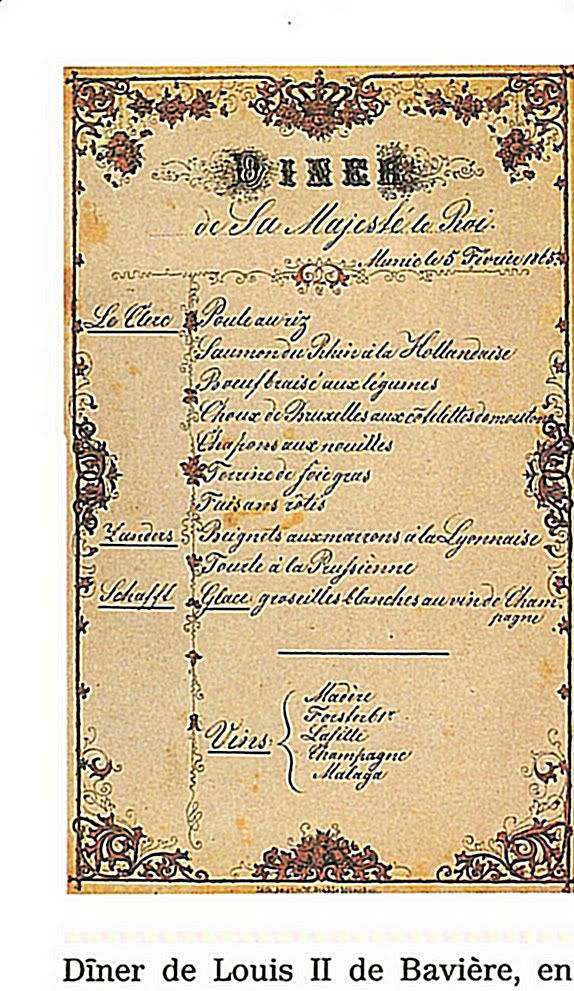 DINER
de Sa Majesté le Roi.
Munic le 5 Février 1865.
Le Clerc Poule au riz
Saumon du Rhin à la Hollandaise
Boeuf braisé aux légumes
Choux de Bruxelles aux côtelettes de mouton
Chapons aux nouilles
Terrine de foie gras
Faisans rôtis
Zanders Beignets aux marrons à la Lyonnaise
Tourte à la Prussienne
Schaffl Glace groseilles blanches au vin de Cham-
pagne
Vins
Madère
Forsterbr
Lafitte
Champagne
Malaga
Dîner de Louis II de Bavière, en